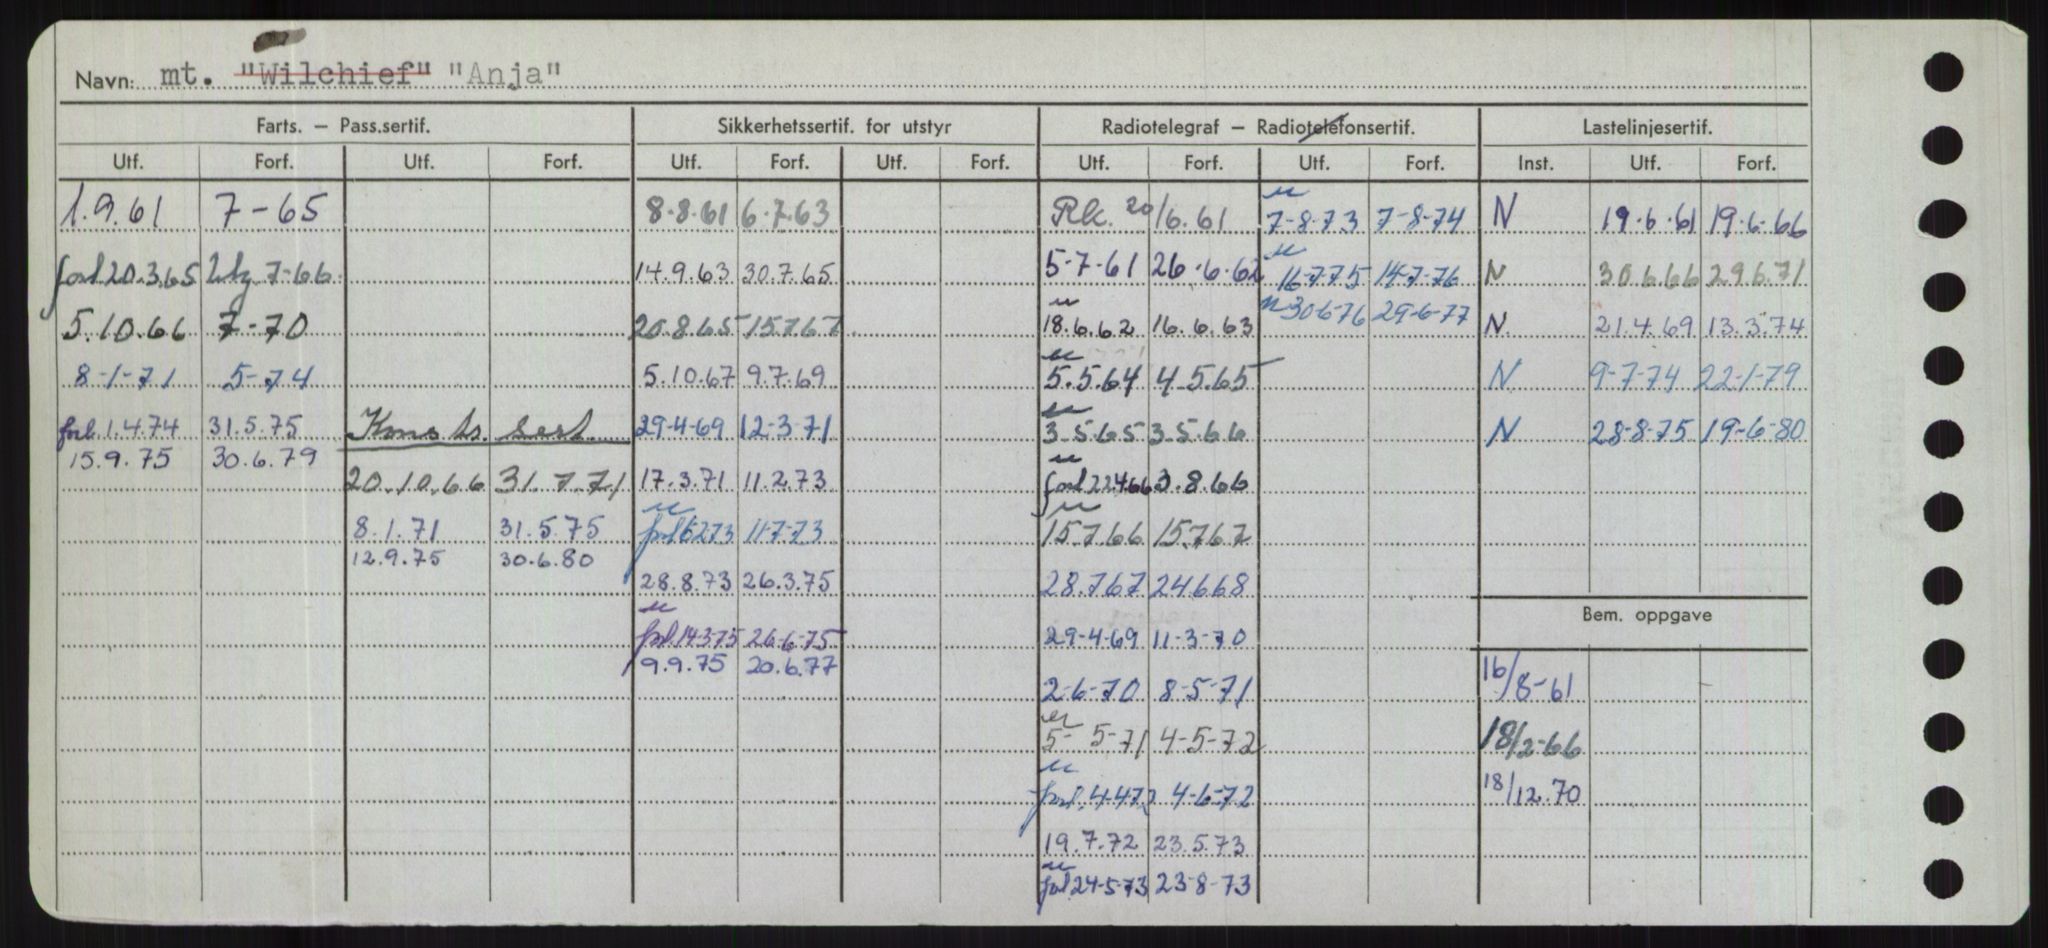 Navn: mt. "Wilchief" "Anja"
Farts. – Pass.sertif. Sikkerhetssertif. for utstyr Radiotelegraf – Radiotelefonsertif. Lastelinjesertif.
Utf. Forf. Utf. Forf. Utf. Forf. Utf. Forf. Utf. Forf. Utf. Forf. Inst. Utf. Forf.
1.9.61 7-65 8-8.61 6.7.63 20/6.61 7-8-73 7-8-74 N 19.6.61 19.6.66
forl 20.3.65 7-66 14.9.63 30.7.65 5-7-61 26.6.62 16-7-75 14-7-76 N 30.6.66 29.6.71
5.10.66 7-70 20.8.65 15.7.67 18.6.62 16.6.63 30-6-76 29-6-77 N 21.4.69 13.3.74
8-1-71 5-74 5.10.67 9.7.69 5.5.64 4.5.65 N 9-7-74 22-1-79
forl. 1.4.74 31.5.75 Konstr. sert. 29-4-69 12-3-71 3.5.65 3.5.66 N 28-8-75 19-6-80
15.9.75 30.6.79
20.10.66 31.7.71 17.3.71 11.2.73 forl 22.4.66 3.8.66
8.1.71 31.5.75 forl 6273 11-7-73 15.7.66 15.7.67
12.9.75 30.6.80
28.8.73 26.3.75 28.7.67 24.6.68
Bem. oppgave
forl. 14-3-75 26-6-75 29-4-69 11-3-70
9.9.75 20.6.77
2-6-70 8-5-71 16/8-61
5-5-71 4-5-72 18/2-66
forl. 4-4-72 4-6-72 18/12.70
19.7.72 23.5.73
forl 24-5-73 23-8-73